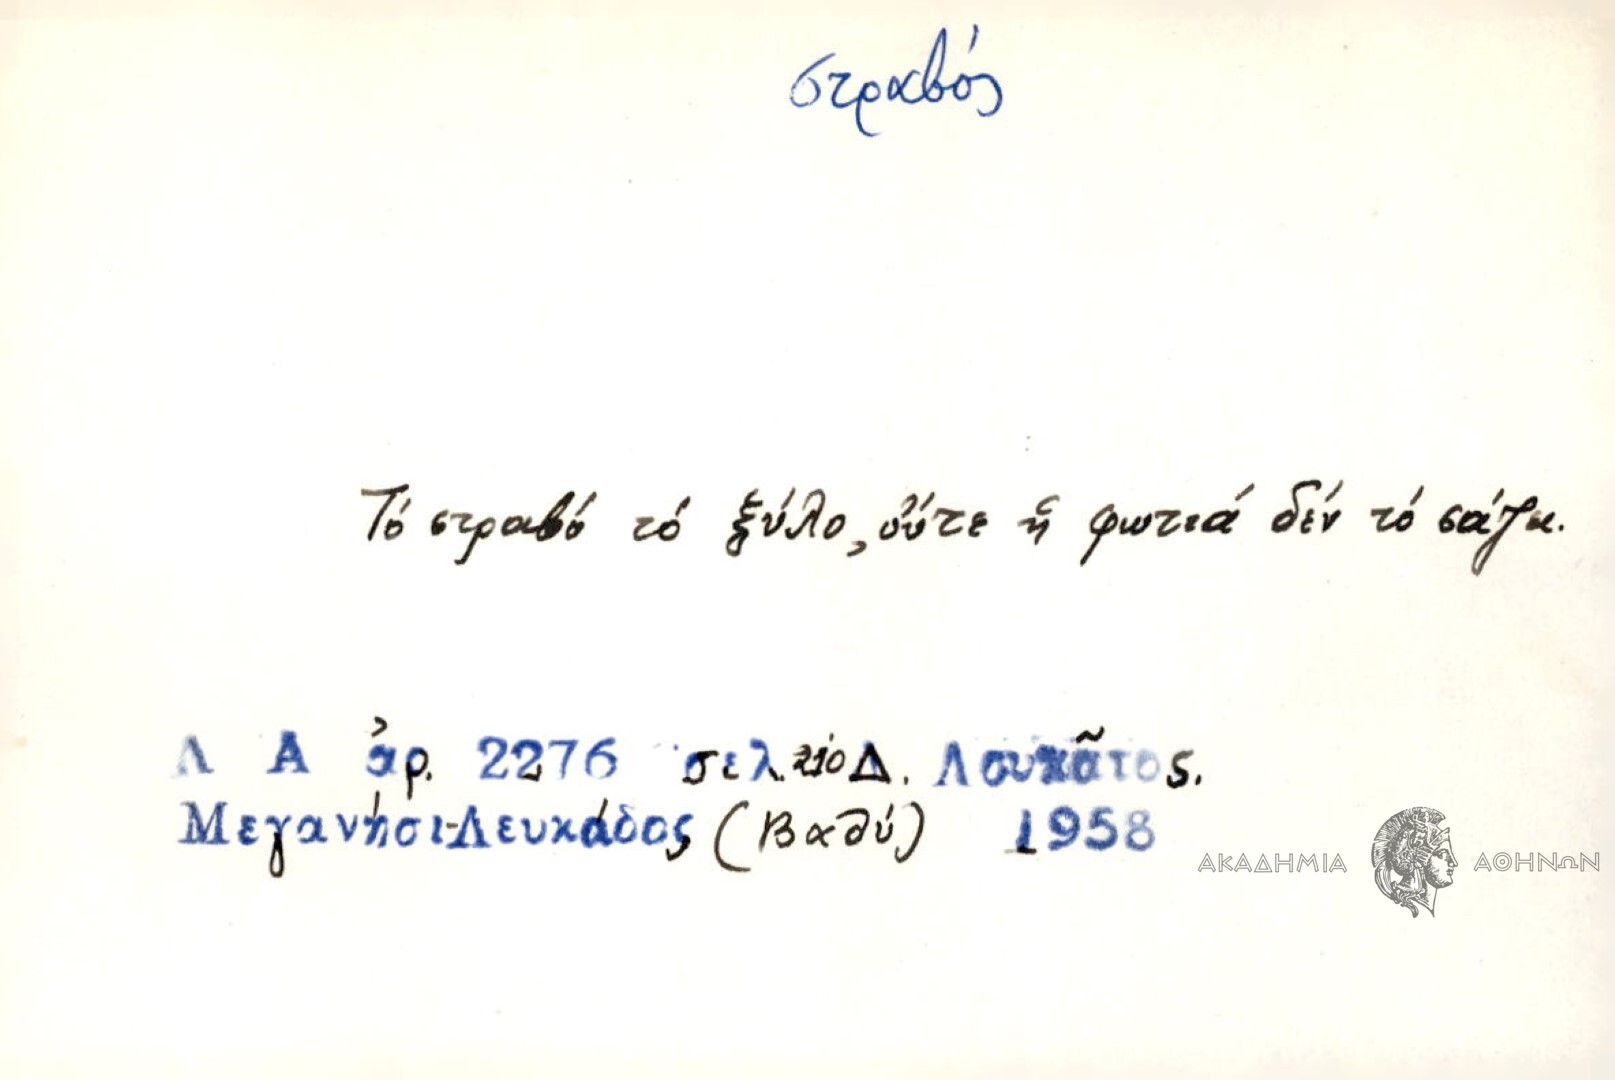 στραβός
Τό στραβό τό ξύλο, οὔτε ἡ φωτιά δέν τό σάζει.
Λ Α ἀρ. 2276 σελ. 210 Δ. Λουκᾶτος.
Μεγανήσι-Λευκάδος (Βαθύ) 1958
ΑΚΑΔΗΜΙΑ ΑΘΗΝΩΝ